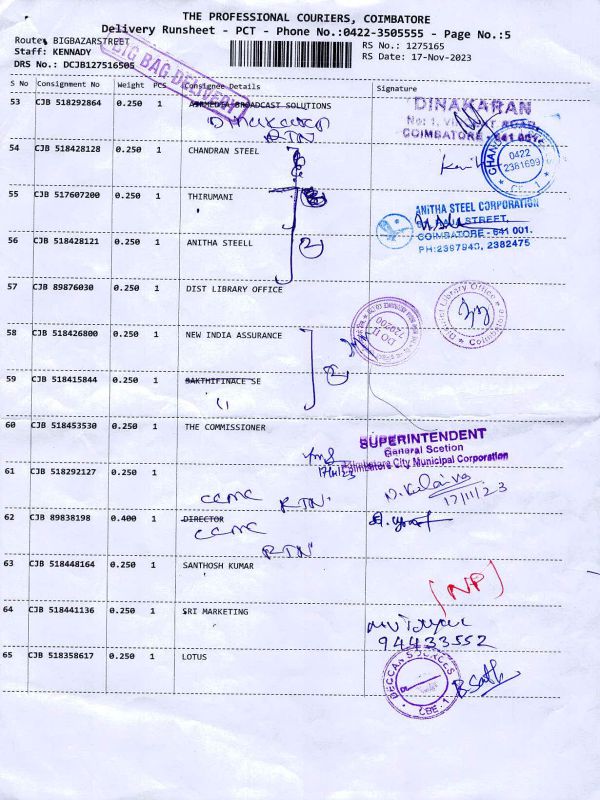 THE PROFESSIONAL COURIERS, COIMBATORE
Delivery Runsheet - PCT - Phone No.:0422-3505555 - Page No.:5
Route: BIGBAZARSTREET
Staff: KENNADY
DRS No.: DCJB127516505
RS No.: 1275165
RS Date: 17-Nov-2023
BIG BAG DELIVERY
S No Consignment No Weight PCS Consignee Details Signature
53 CJB 518292864 0.250 BROADCAST SOLUTIONS
Dinakaran
RTN
DINAKARAN
COIMBATORE - 641 001
54 CJB 518428128 0.250 1 CHANDRAN STEEL
0422
2381699
CBE - 1
55 CJB 517607200 0.250 1 THIRUMANI
ANITHA STEEL CORPORATION
STREET,
COIMBATORE - 641 001.
PH:2397943, 2382475
56 CJB 518428121 0.250 1 ANITHA STEELL
2
57 CJB 89876030 0.250 1 DIST LIBRARY OFFICE
District Library Office
Coimbatore
58 CJB 518426800 0.250 1 NEW INDIA ASSURANCE
OO II
720200
59 CJB 518415844 0.250 1 SAKTHIFINACE SE
2
60 CJB 518453530 0.250 1 THE COMMISSIONER
17/11/23
SUPERINTENDENT
General Scetion
Coimbatore City Municipal Corporation
61 CJB 518292127 0.250 1
CCMC RTN
17/11/23
62 CJB 89838198 0.400 1 DIRECTOR
CCMC
RTN
63 CJB 518448164 0.250 1 SANTHOSH KUMAR
[NP]
64 CJB 518441136 0.250 1 SRI MARKETING
94433552
65 CJB 518358617 0.250 1 LOTUS
DECCAN SOURCES
CBE - 1